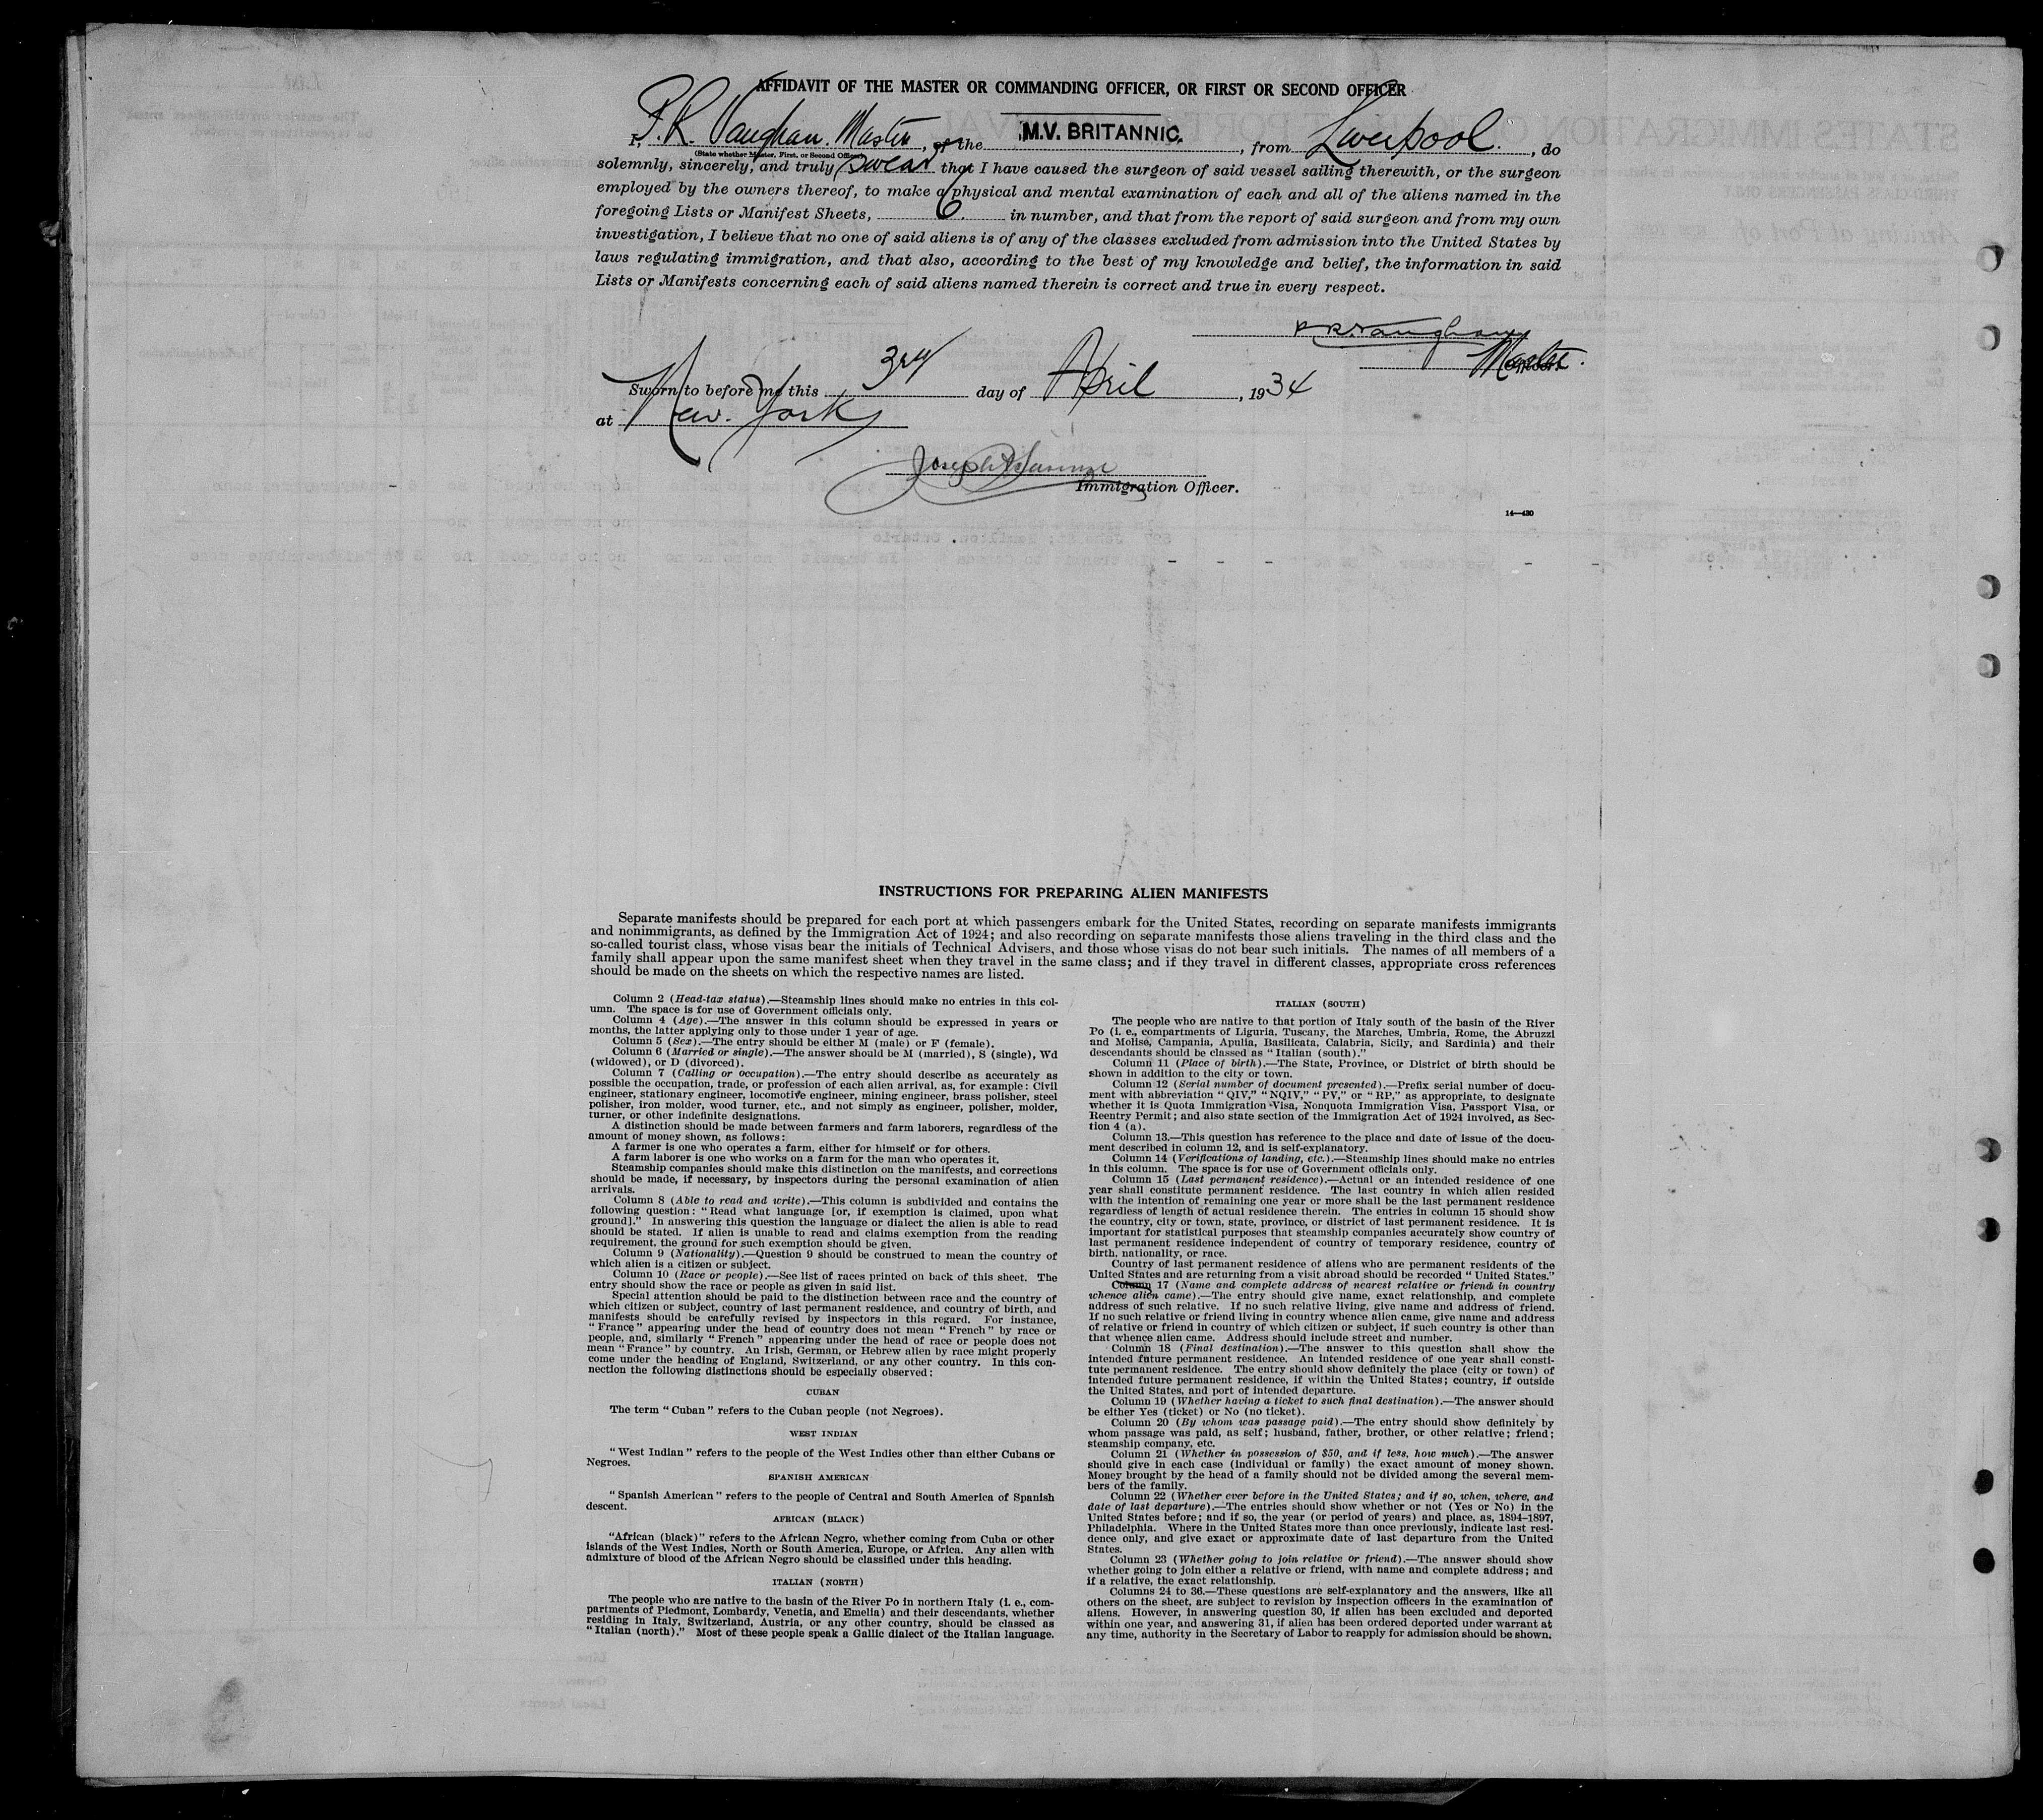 AFFIDAVIT OF THE MASTER OR COMMANDING OFFICER, OR FIRST OR SECOND OFFICER
I, P. R. Vaughan. Master, of the M.V. BRITANNIC., from Liverpool., do
(State whether Master, First, or Second Officer)
solemnly, sincerely, and truly swear that I have caused the surgeon of said vessel sailing therewith, or the surgeon
employed by the owners thereof, to make a physical and mental examination of each and all of the aliens named in the
foregoing Lists or Manifest Sheets, 6. in number, and that from the report of said surgeon and from my own
investigation, I believe that no one of said aliens is of any of the classes excluded from admission into the United States by
laws regulating immigration, and that also, according to the best of my knowledge and belief, the information in said
Lists or Manifests concerning each of said aliens named therein is correct and true in every respect.
P R Vaughan
Master.
Officer.
Sworn to before me this 3rd day of April, 1934
at New. York
Joseph
Immigration Officer.
14—430
INSTRUCTIONS FOR PREPARING ALIEN MANIFESTS
Separate manifests should be prepared for each port at which passengers embark for the United States, recording on separate manifests immigrants
and nonimmigrants, as defined by the Immigration Act of 1924; and also recording on separate manifests those aliens traveling in the third class and the
so-called tourist class, whose visas bear the initials of Technical Advisers, and those whose visas do not bear such initials. The names of all members of a
family shall appear upon the same manifest sheet when they travel in the same class; and if they travel in different classes, appropriate cross references
should be made on the sheets on which the respective names are listed.
Column 2 (Head-tax status).—Steamship lines should make no entries in this col-
umn. The space is for use of Government officials only.
Column 4 (Age).—The answer in this column should be expressed in years or
months, the latter applying only to those under 1 year of age.
Column 5 (Sex).—The entry should be either M (male) or F (female).
Column 6 (Married or single).—The answer should be M (married), S (single), Wd
(widowed), or D (divorced).
Column 7 (Calling or occupation).—The entry should describe as accurately as
possible the occupation, trade, or profession of each alien arrival, as, for example: Civil
engineer, stationary engineer, locomotive engineer, mining engineer, brass polisher, steel
polisher, iron molder, wood turner, etc., and not simply as engineer, polisher, molder,
turner, or other indefinite designations.
A distinction should be made between farmers and farm laborers, regardless of the
amount of money shown, as follows:
A farmer is one who operates a farm, either for himself or for others.
A farm laborer is one who works on a farm for the man who operates it.
Steamship companies should make this distinction on the manifests, and corrections
should be made, if necessary, by inspectors during the personal examination of alien
arrivals.
Column 8 (Able to read and write).—This column is subdivided and contains the
following question: "Read what language [or, if exemption is claimed, upon what
ground]." In answering this question the language or dialect the alien is able to read
should be stated. If alien is unable to read and claims exemption from the reading
requirement, the ground for such exemption should be given.
Column 9 (Nationality).—Question 9 should be construed to mean the country of
which alien is a citizen or subject.
Column 10 (Race or people).—See list of races printed on back of this sheet. The
entry should show the race or people as given in said list.
Special attention should be paid to the distinction between race and the country of
which citizen or subject, country of last permanent residence, and country of birth, and
manifests should be carefully revised by inspectors in this regard. For instance,
"France" appearing under the head of country does not mean "French" by race or
people, and, similarly "French" appearing under the head of race or people does not
mean "France" by country. An Irish, German, or Hebrew alien by race might properly
come under the heading of England, Switzerland, or any other country. In this con-
nection the following distinctions should be especially observed:
CUBAN
The term "Cuban" refers to the Cuban people (not Negroes).
WEST INDIAN
"West Indian" refers to the people of the West Indies other than either Cubans or
Negroes.
SPANISH AMERICAN
"Spanish American" refers to the people of Central and South America of Spanish
descent.
AFRICAN (BLACK)
"African (black)" refers to the African Negro, whether coming from Cuba or other
islands of the West Indies, North or South America, Europe, or Africa. Any alien with
admixture of blood of the African Negro should be classified under this heading.
ITALIAN (NORTH)
The people who are native to the basin of the River Po in northern Italy (i. e., com-
partments of Piedmont, Lombardy, Venetia, and Emelia) and their descendants, whether
residing in Italy, Switzerland, Austria, or any other country, should be classed as
"Italian (north)." Most of these people speak a Gallic dialect of the Italian language.
ITALIAN (SOUTH)
The people who are native to that portion of Italy south of the basin of the River
Po (i. e., compartments of Liguria, Tuscany, the Marches, Umbria, Rome, the Abruzzi
and Molise, Campania, Apulia, Basilicata, Calabria, Sicily, and Sardinia) and their
descendants should be classed as "Italian (south)."
Column 11 (Place of birth).—The State, Province, or District of birth should be
shown in addition to the city or town.
Column 12 (Serial number of document presented).—Prefix serial number of docu-
ment with abbreviation "QIV," "NQIV," "PV," or "RP," as appropriate, to designate
whether it is Quota Immigration Visa, Nonquota Immigration Visa, Passport Visa, or
Reentry Permit; and also state section of the Immigration Act of 1924 involved, as Sec-
tion 4 (a).
Column 13.—This question has reference to the place and date of issue of the docu-
ment described in column 12, and is self-explanatory.
Column 14 (Verifications of landing, etc.).—Steamship lines should make no entries
in this column. The space is for use of Government officials only.
Column 15 (Last permanent residence).—Actual or an intended residence of one
year shall constitute permanent residence. The last country in which alien resided
with the intention of remaining one year or more shall be the last permanent residence
regardless of length of actual residence therein. The entries in column 15 should show
the country, city or town, state, province, or district of last permanent residence. It is
important for statistical purposes that steamship companies accurately show country of
last permanent residence independent of country of temporary residence, country of
birth, nationality, or race.
Country of last permanent residence of aliens who are permanent residents of the
United States and are returning from a visit abroad should be recorded "United States."
Column 17 (Name and complete address of nearest relative or friend in country
whence alien came).—The entry should give name, exact relationship, and complete
address of such relative. If no such relative living, give name and address of friend.
If no such relative or friend living in country whence alien came, give name and address
of relative or friend in country of which citizen or subject, if such country is other than
that whence alien came. Address should include street and number.
Column 18 (Final destination).—The answer to this question shall show the
intended future permanent residence. An intended residence of one year shall consti-
tute permanent residence. The entry should show definitely the place (city or town) of
intended future permanent residence, if within the United States; country, if outside
the United States, and port of intended departure.
Column 19 (Whether having a ticket to such final destination).—The answer should
be either Yes (ticket) or No (no ticket).
Column 20 (By whom was passage paid).—The entry should show definitely by
whom passage was paid, as self; husband, father, brother, or other relative; friend;
steamship company, etc.
Column 21 (Whether in possession of $50, and if less, how much).—The answer
should give in each case (individual or family) the exact amount of money shown.
Money brought by the head of a family should not be divided among the several mem-
bers of the family.
Column 22 (Whether ever before in the United States; and if so, when, where, and
date of last departure).—The entries should show whether or not (Yes or No) in the
United States before; and if so, the year (or period of years) and place, as, 1894–1897,
Philadelphia. Where in the United States more than once previously, indicate last resi-
dence only, and give exact or approximate date of last departure from the United
States.
Column 23 (Whether going to join relative or friend).—The answer should show
whether going to join either a relative or friend, with name and complete address; and
if a relative, the exact relationship.
Columns 24 to 36.—These questions are self-explanatory and the answers, like all
others on the sheet, are subject to revision by inspection officers in the examination of
aliens. However, in answering question 30, if alien has been excluded and deported
within one year, and answering 31, if alien has been ordered deported under warrant at
any time, authority in the Secretary of Labor to reapply for admission should be shown.